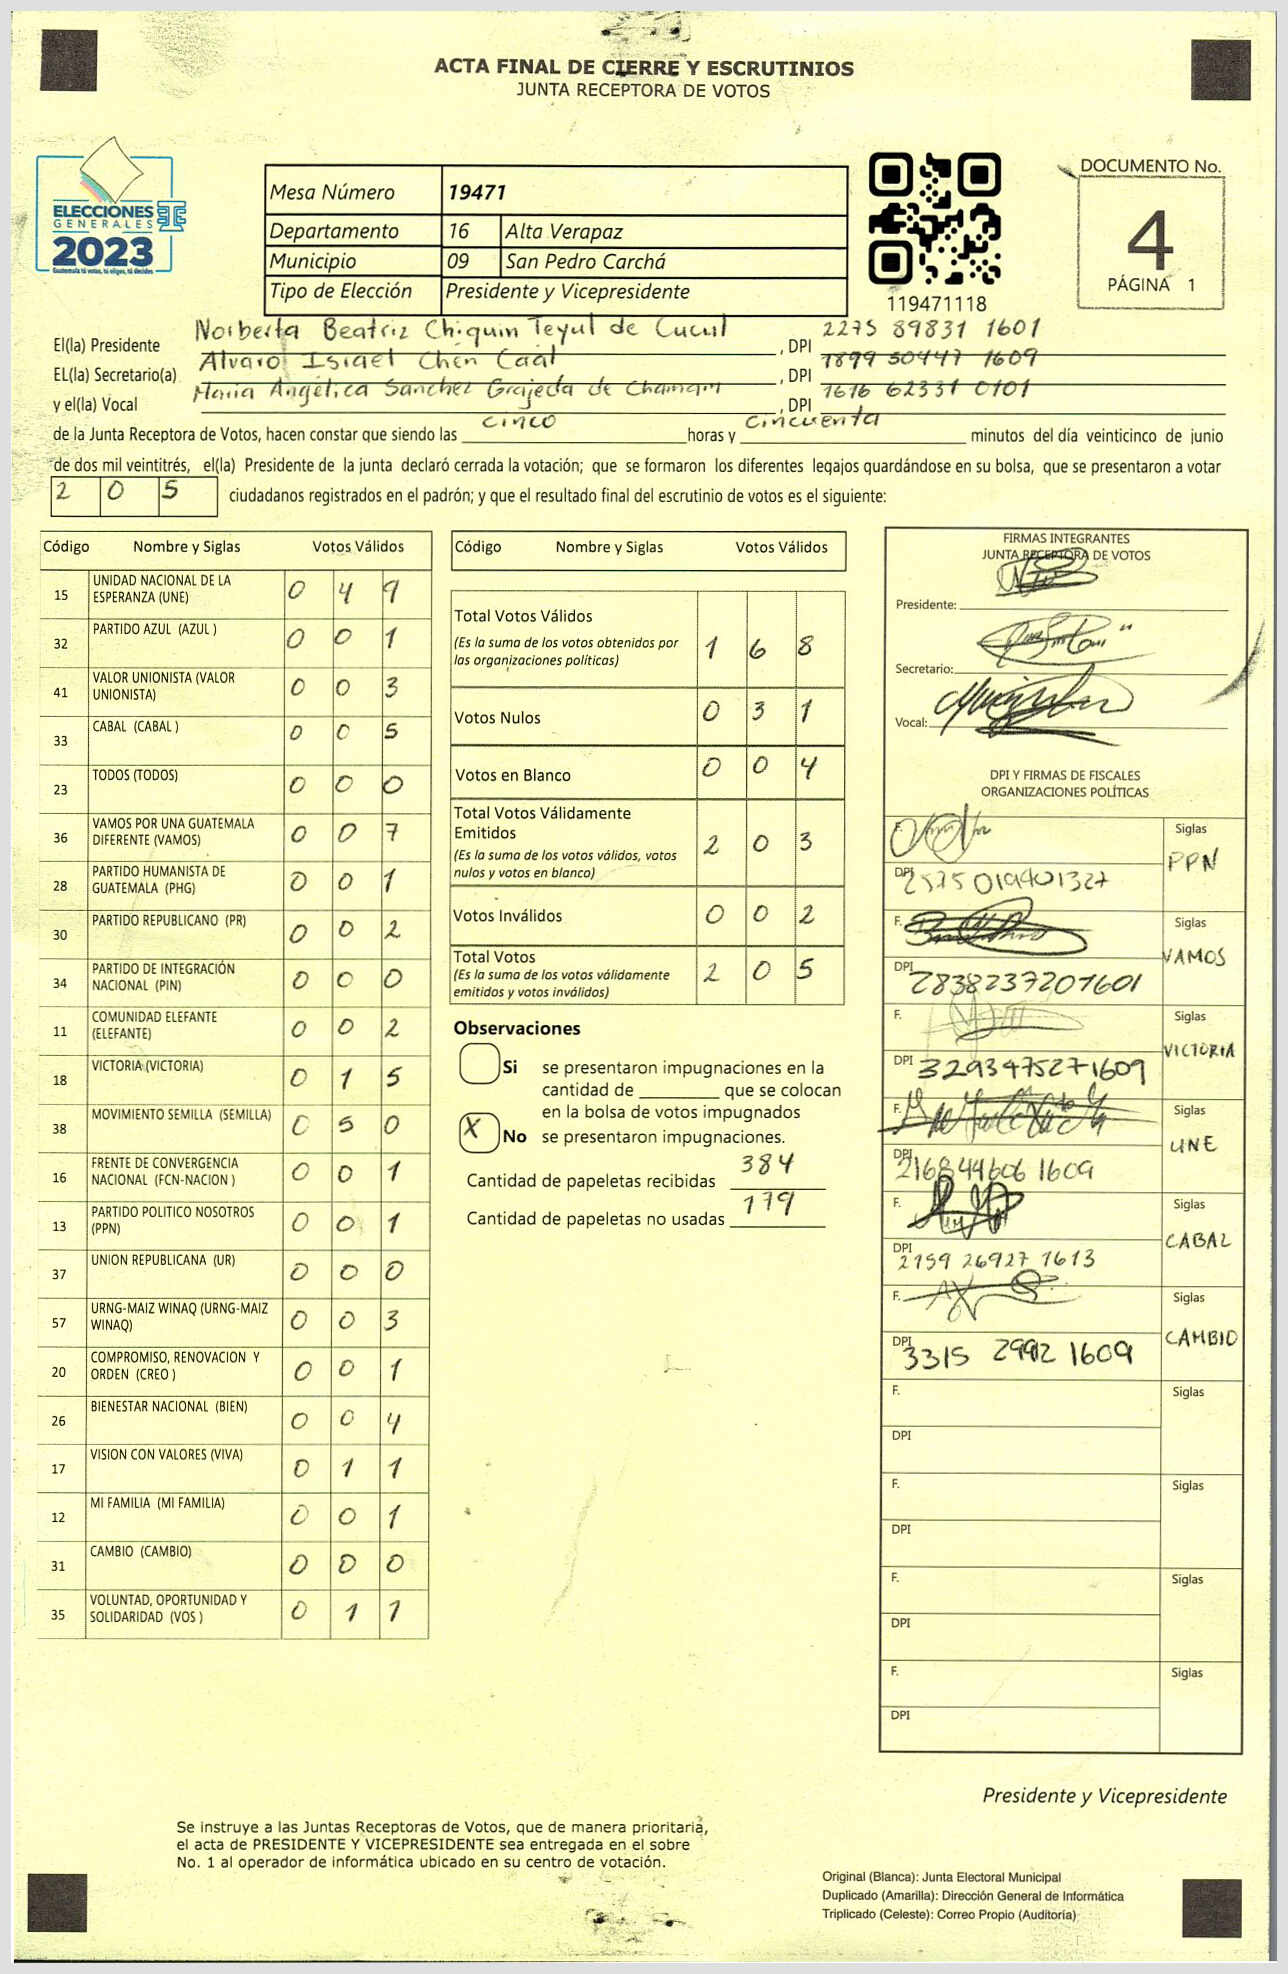 ACTA FINAL DE CIERRE Y ESCRUTINIOS
JUNTA RECEPTORA DE VOTOS
ELECCIONES
GENERALES
2023
Guatemala tú votas, tú eliges, tú decides
Mesa Número 19471
Departamento 16 Alta Verapaz
Municipio 09 San Pedro Carchá
Tipo de Elección Presidente y Vicepresidente
119471118
DOCUMENTO No.
4
PÁGINA 1
El(la) Presidente Norberta Beatriz Chiquin Teyul de Cucul, DPI 2275 89831 1601
EL(la) Secretario(a) Alvaro Israel Chen Caal, DPI 1899 50447 1609
y el(la) Vocal Maria Angélica Sanchez Grajeda de Chamam, DPI 1616 62331 0101
de la Junta Receptora de Votos, hacen constar que siendo las cinco horas y cincuenta minutos del día veinticinco de junio
de dos mil veintitrés, el(la) Presidente de la junta declaró cerrada la votación; que se formaron los diferentes legajos guardándose en su bolsa, que se presentaron a votar
2 0 5 ciudadanos registrados en el padrón; y que el resultado final del escrutinio de votos es el siguiente:
Código Nombre y Siglas Votos Válidos
15 UNIDAD NACIONAL DE LA ESPERANZA (UNE) 0 4 9
32 PARTIDO AZUL (AZUL ) 0 0 1
41 VALOR UNIONISTA (VALOR UNIONISTA) 0 0 3
33 CABAL (CABAL ) 0 0 5
23 TODOS (TODOS) 0 0 0
36 VAMOS POR UNA GUATEMALA DIFERENTE (VAMOS) 0 0 7
28 PARTIDO HUMANISTA DE GUATEMALA (PHG) 0 0 1
30 PARTIDO REPUBLICANO (PR) 0 0 2
34 PARTIDO DE INTEGRACIÓN NACIONAL (PIN) 0 0 0
11 COMUNIDAD ELEFANTE (ELEFANTE) 0 0 2
18 VICTORIA (VICTORIA) 0 1 5
38 MOVIMIENTO SEMILLA (SEMILLA) 0 5 0
16 FRENTE DE CONVERGENCIA NACIONAL (FCN-NACION ) 0 0 1
13 PARTIDO POLITICO NOSOTROS (PPN) 0 0 1
37 UNION REPUBLICANA (UR) 0 0 0
57 URNG-MAIZ WINAQ (URNG-MAIZ WINAQ) 0 0 3
20 COMPROMISO, RENOVACION Y ORDEN (CREO ) 0 0 1
26 BIENESTAR NACIONAL (BIEN) 0 0 4
17 VISION CON VALORES (VIVA) 0 1 1
12 MI FAMILIA (MI FAMILIA) 0 0 1
31 CAMBIO (CAMBIO) 0 0 0
35 VOLUNTAD, OPORTUNIDAD Y SOLIDARIDAD (VOS ) 0 1 1
Código Nombre y Siglas Votos Válidos
Total Votos Válidos 1 6 8
(Es la suma de los votos obtenidos por
las organizaciones políticas)
Votos Nulos 0 3 1
Votos en Blanco 0 0 4
Total Votos Válidamente
Emitidos 2 0 3
(Es la suma de los votos válidos, votos
nulos y votos en blanco)
Votos Inválidos 0 0 2
Total Votos 2 0 5
(Es la suma de los votos válidamente
emitidos y votos inválidos)
Observaciones
Si se presentaron impugnaciones en la
cantidad de ________ que se colocan
en la bolsa de votos impugnados
X No se presentaron impugnaciones.
Cantidad de papeletas recibidas 384
Cantidad de papeletas no usadas 179
FIRMAS INTEGRANTES
JUNTA RECEPTORA DE VOTOS
Presidente:
Secretario:
Vocal:
DPI Y FIRMAS DE FISCALES
ORGANIZACIONES POLÍTICAS
F. Siglas PPN
DPI 2575 019401327
F. Siglas VAMOS
DPI 2838237201601
F. Siglas VICTORIA
DPI 3293475271609
F. Siglas UNE
DPI 216844606 1609
F. Siglas CABAL
DPI 2159 26927 1613
F. Siglas CAMBIO
DPI 3315 2992 1609
F. Siglas
DPI
F. Siglas
DPI
F. Siglas
DPI
F. Siglas
DPI
Presidente y Vicepresidente
Se instruye a las Juntas Receptoras de Votos, que de manera prioritaria,
el acta de PRESIDENTE Y VICEPRESIDENTE sea entregada en el sobre
No. 1 al operador de informática ubicado en su centro de votación.
Original (Blanca): Junta Electoral Municipal
Duplicado (Amarilla): Dirección General de Informática
Triplicado (Celeste): Correo Propio (Auditoría)